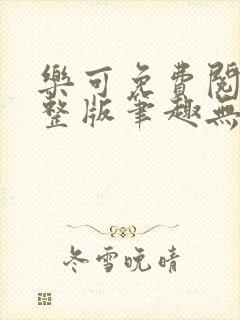 樂可免費閱
整版筆趣無
冬雪晚晴